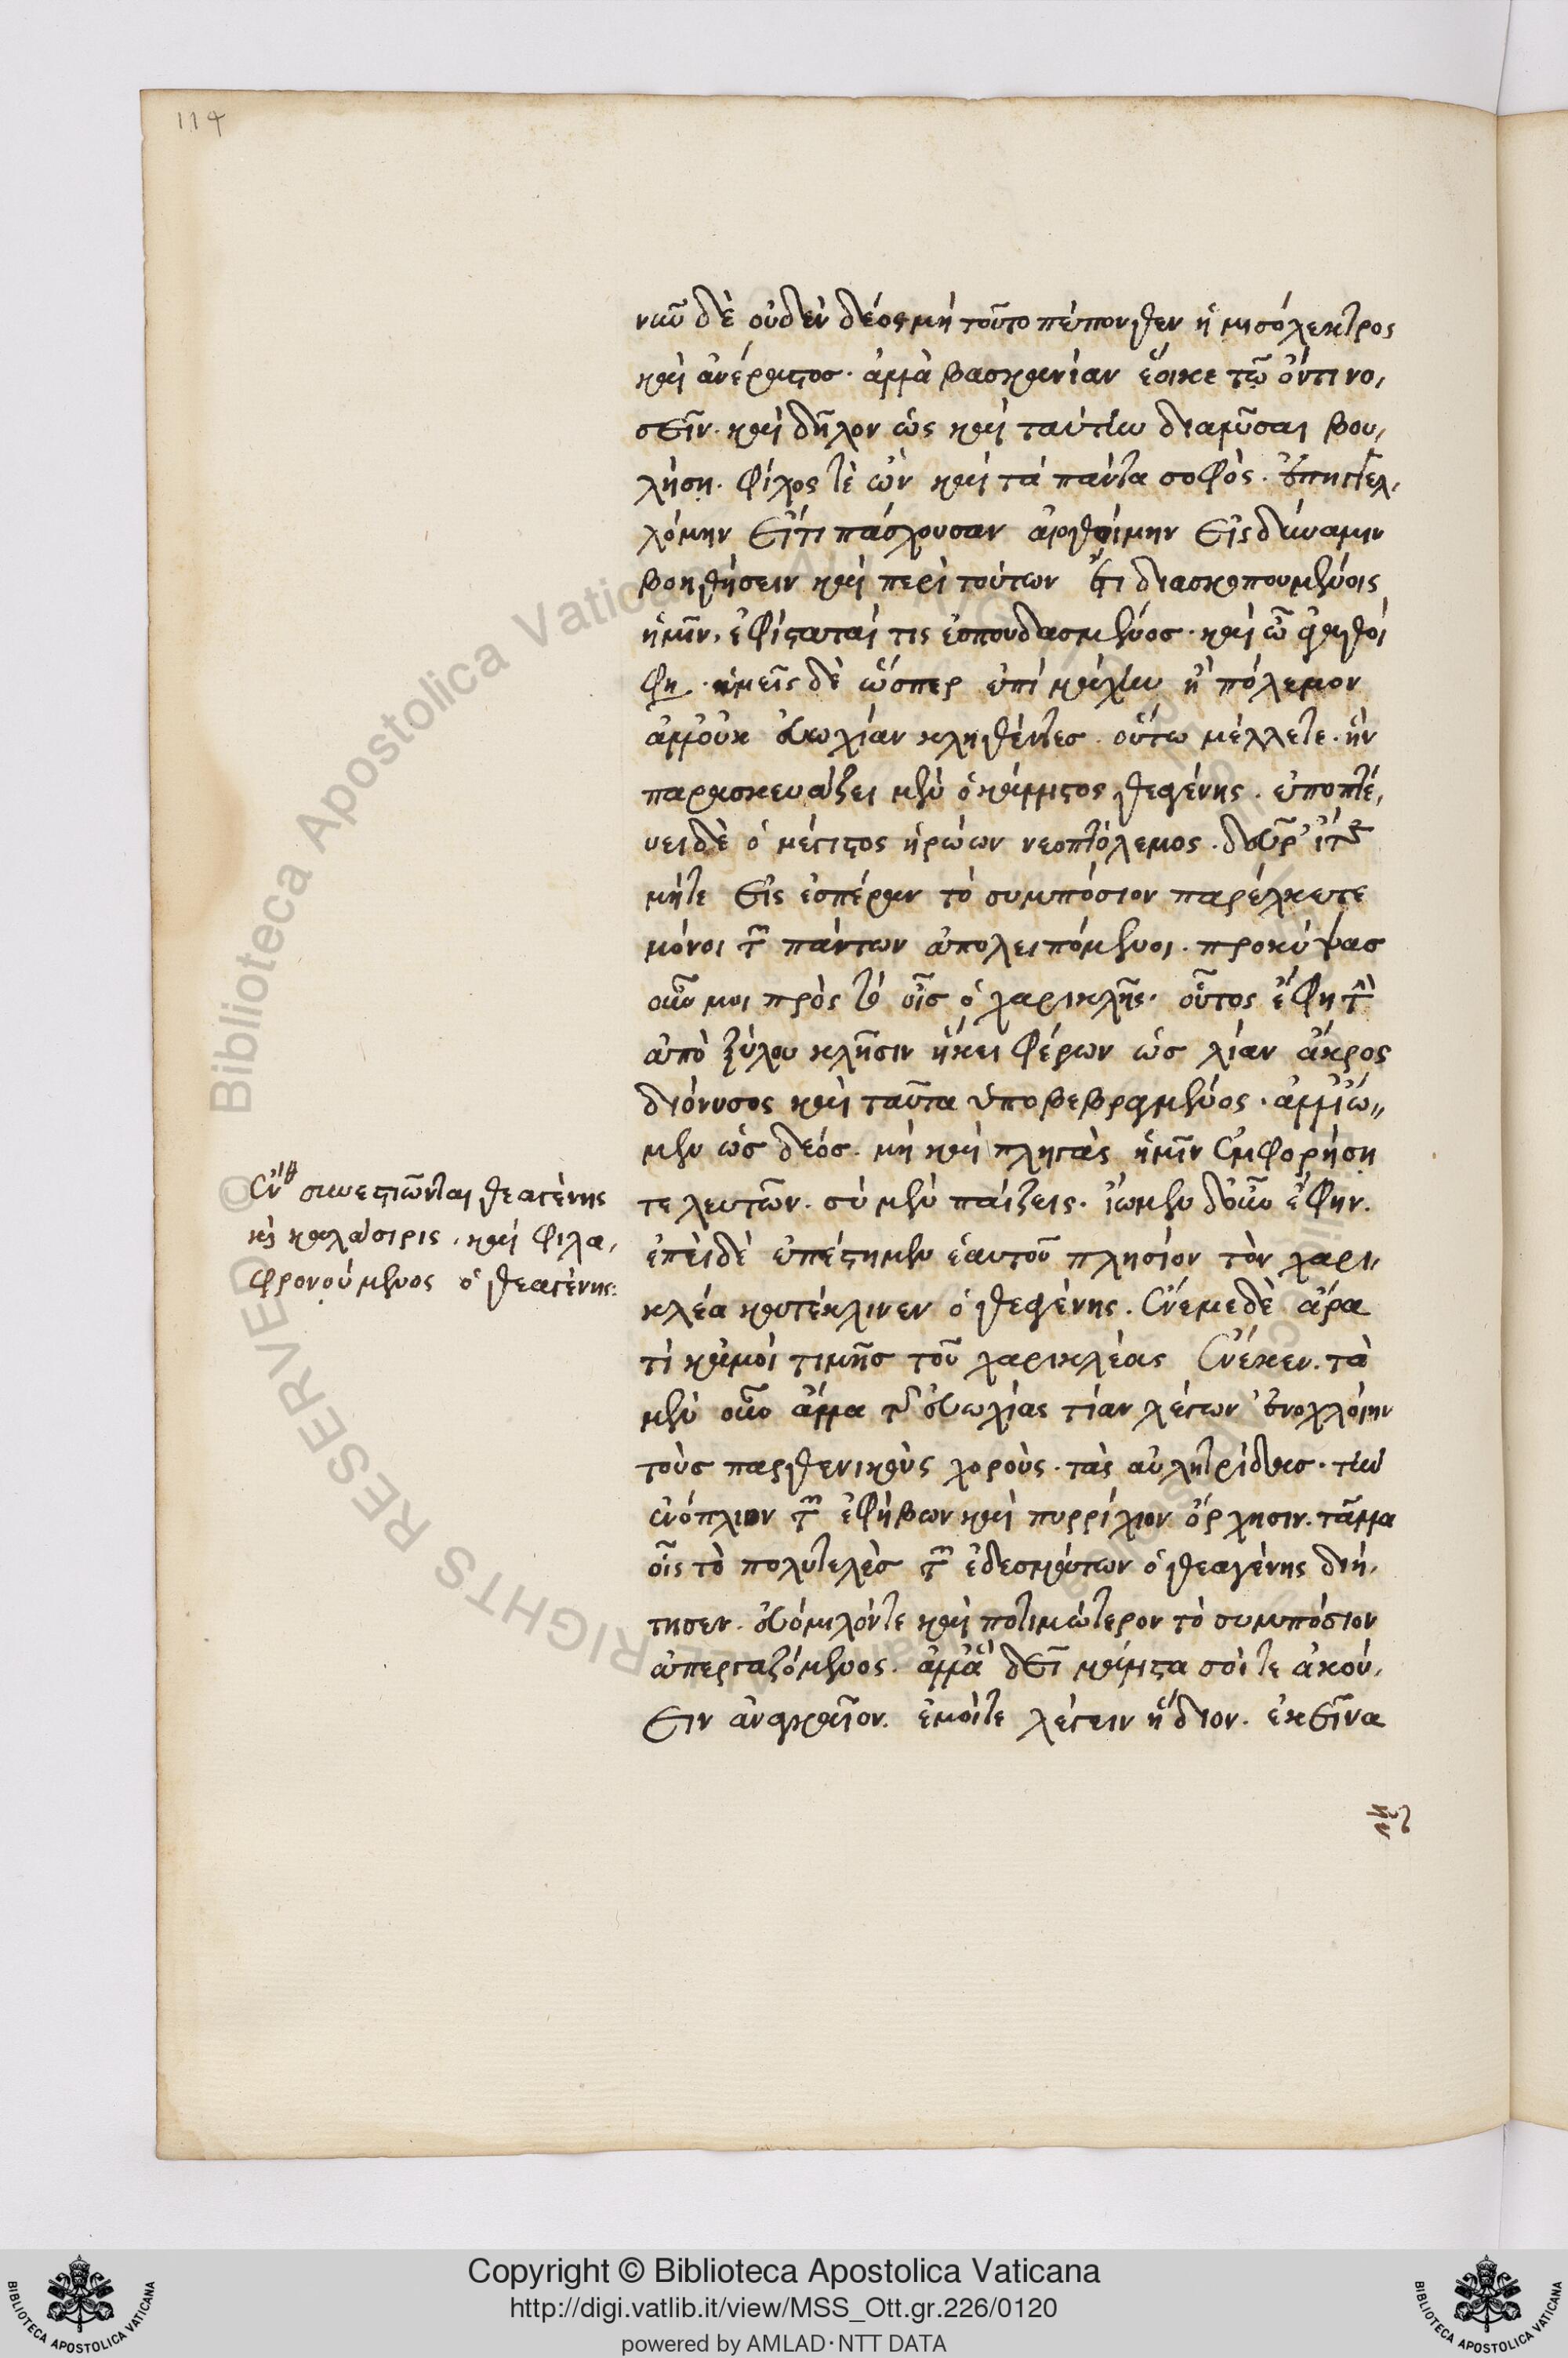 114
νῦν δὲ οὐδὲν δέος μὴ τοῦτο πέπονθεν ἡ μισόλεκτρος
καὶ ἀνέραστος. ἀλλὰ βασκανίαν ἔοικε τῶ ὄντι νο,
σεῖν. καὶ δῆλον ὡς καὶ ταύτην διαλῦσαι βου,
λήση. φίλος τὲ ὢν καὶ τὰ πάντα σοφὸς. ἐπηγγελ,
λόμην εἴ τι πάσχουσαν αἰσθοίμην εἰς δύναμιν
βοηθήσειν καὶ περὶ τούτων ἔτι διασκοπουμένοις
ἡμῖν, ἐφίσταταί τις ἐσπουδασμένος. καὶ ὦ ἀγαθοί
φη. ὑμεῖς δὲ ὥσπερ ἐπὶ μάχην ἢ πόλεμον
ἀλλ' οὐκ εὐωχίαν κληθέντες. οὕτω μέλλετε. ἣν
παρασκευάζει μὲν ὁ κάλλιστος θεαγένης. ἐποπτέ,
υει δὲ ὁ μέγιστος ἡρώων νεοπτόλεμος. δεῦρ' ἴτε
μήτε εἰς ἑσπέραν τὸ συμπόσιον παρέλκετε
μόνοι τῶν πάντων ἀπολειπόμενοι. προκύψας
οὖν μοι πρὸς τὸ οὖς ὁ χαρικλῆς. οὗτος ἔφη τὴν
ἀπὸ ξύλου κλῆσιν ἥκει φέρων ὡς λίαν ἄκρος
διόνυσος καὶ ταῦτα ὑποβεβρεγμένος. ἀλλ' ἴω"
μεν ὡς δεός. μὴ καὶ πληγὰς ἡμῖν ἐμφορήση
τελευτῶν. σὺ μὲν παίζεις. ἴωμεν δ' οὖν ἔφην.
ἐπεὶ δὲ ἐπέστημεν ἑαυτοῦ πλησίον τὸν χαρι"
κλέα κατέκλινεν ὁ θεαγένης. ἔνεμε δὲ ἄρα
τὶ κἀμοὶ τιμῆς τοῦ χαρικλέας ἕνεκεν. τὰ
μὲν οὖν ἄλλα τῆς εὐωχίας τί ἂν λέγων ἐνοχλοίην
τοὺς παρθενικοὺς χοροὺς. τὰς αὐλητρίδας. τὴν
ἐνόπλιον τῶν ἐφήβων καὶ πυρρίχιον ὄρχησιν. τἄλλα
οἷς τὸ πολυτελὲς τῶν ἐδεσμάτων ὁ θεαγένης διή,
τησεν. εὐόμιλόν τε καὶ ποτιμώτερον τὸ συμπόσιον
ἀπεργαζόμενος. ἀλλ' ἃ δεῖ μάλιστα σοί τε ἀκού,
ειν ἀναγκαῖον. ἐμοί τε λέγειν ἥδιον. ἐκεῖνα
συνεστιῶνται θεαγένης
καὶ καλάσιρις, καὶ φιλο,
φρονούμενος ὁ θεαγένης:
© Biblioteca Apostolica Vaticana ALL RIGHTS RESERVED
Copyright © Biblioteca Apostolica Vaticana
http://digi.vatlib.it/view/MSS_Ott.gr.226/0120
powered by AMLAD·NTT DATA
BIBLIOTECA APOSTOLICA VATICANA
BIBLIOTECA APOSTOLICA VATICANA